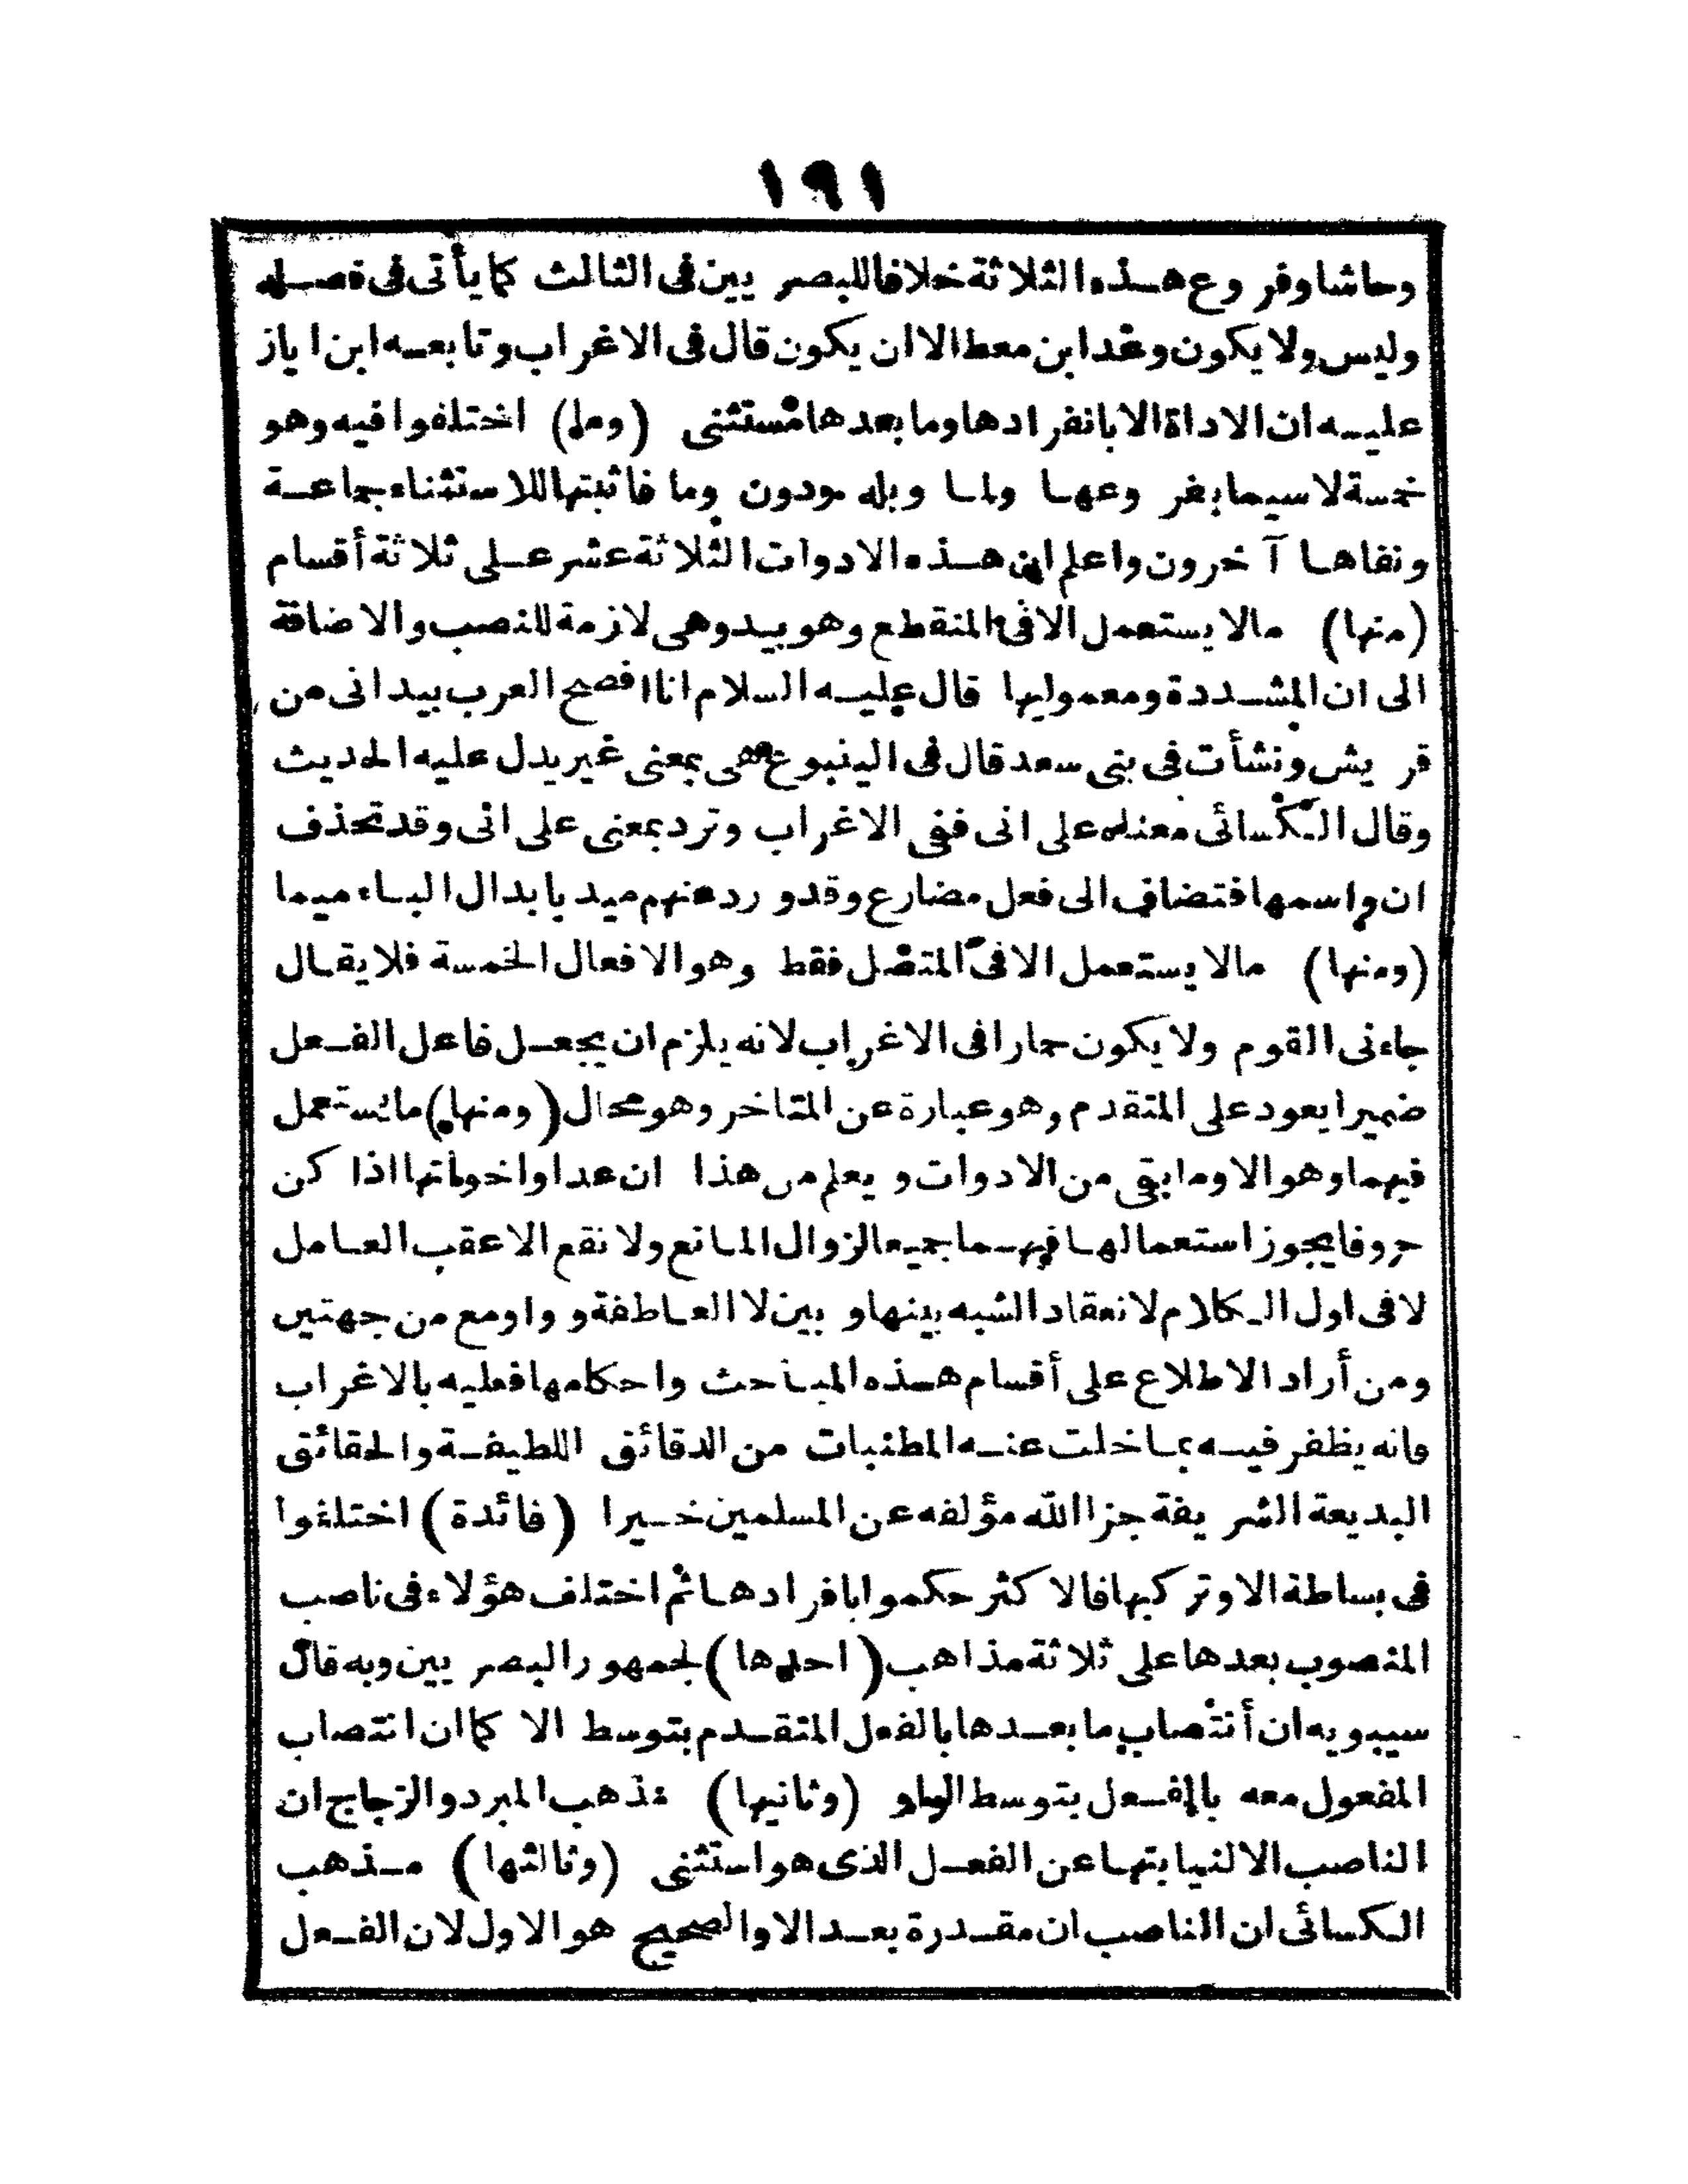 ١٩١
وحاشا وفروع هذه الثلاثة خلافا للبصريين فى الثالث كما يأتى فى فصله
وليس ولا يكون وعد ابن معط الا ان يكون قال فى الاغراب وتابعه ابن اياز
عليه ان الاداة الا بانفرادها وما بعدها مستثنى (وما) اختلفوا فيه وهو
خمسة لا سيما بفروعها ولما وبله ودون وما فاثبتها للاستثناء جماعة
ونفاها آخرون واعلم ان هذه الادوات الثلاثة عشر على ثلاثة أقسام
(منها) مالا يستعمل الا فى المنقطع وهو بيد وهى لازمة للنصب والاضافة
الى ان المشددة ومعموليها قال عليه السلام انا افصح العرب بيد انى من
قريش ونشأت فى بنى سعد قال فى الينبوع وهى بمعنى غير يدل عليه الحديث
وقال الكسائى معناه على انى ففى الاغراب وترد بمعنى على انى وقد تحذف
ان واسمها فتضاف الى فعل مضارع وقد ورد عنهم ميد بابدال الباء ميما
(ومنها) مالا يستعمل الا فى المتصل فقط وهو الافعال الخمسة فلا يقال
جاءنى القوم ولا يكون حمارا فى الاغراب لانه يلزم ان يجعل فاعل الفعل
ضميرا يعود على المتقدم وهو عبارة عن المتاخر وهو محال (ومنها) ما يستعمل
فيهما وهو الا وما بقى من الادوات ويعلم من هذا ان عدا واخواتها اذا كن
حروفا يجوز استعمالها فيهما جميعا لزوال المانع ولا تقع الا عقب العامل
لا فى اول الكلام لانعقاد الشبه بينها وبين لا العاطفة وواو مع من جهتين
ومن أراد الاطلاع على أقسام هذه المباحث واحكامها فعليه بالاغراب
فانه يظفر فيه بما خلت عنه المطنبات من الدقائق اللطيفة والحقائق
البديعة الشريفة جزا الله مؤلفه عن المسلمين خيرا (فائدة) اختلفوا
فى بساطة الا وتركبها فالاكثر حكموا بافرادها ثم اختلف هؤلاء فى ناصب
المنصوب بعدها على ثلاثة مذاهب (احدها) لجمهور البصريين وبه قال
سيبويه ان أنتصاب ما بعدها بالفعل المتقدم بتوسط الا كما ان انتصاب
المفعول معه بالفعل بتوسط الواو (وثانيها) مذهب المبرد والزجاج ان
الناصب الا لنيابتها عن الفعل الذى هو استثنى (وثالثها) مذهب
الكسائى ان الناصب ان مقدرة بعد الا والصحيح هو الاول لان الفعل